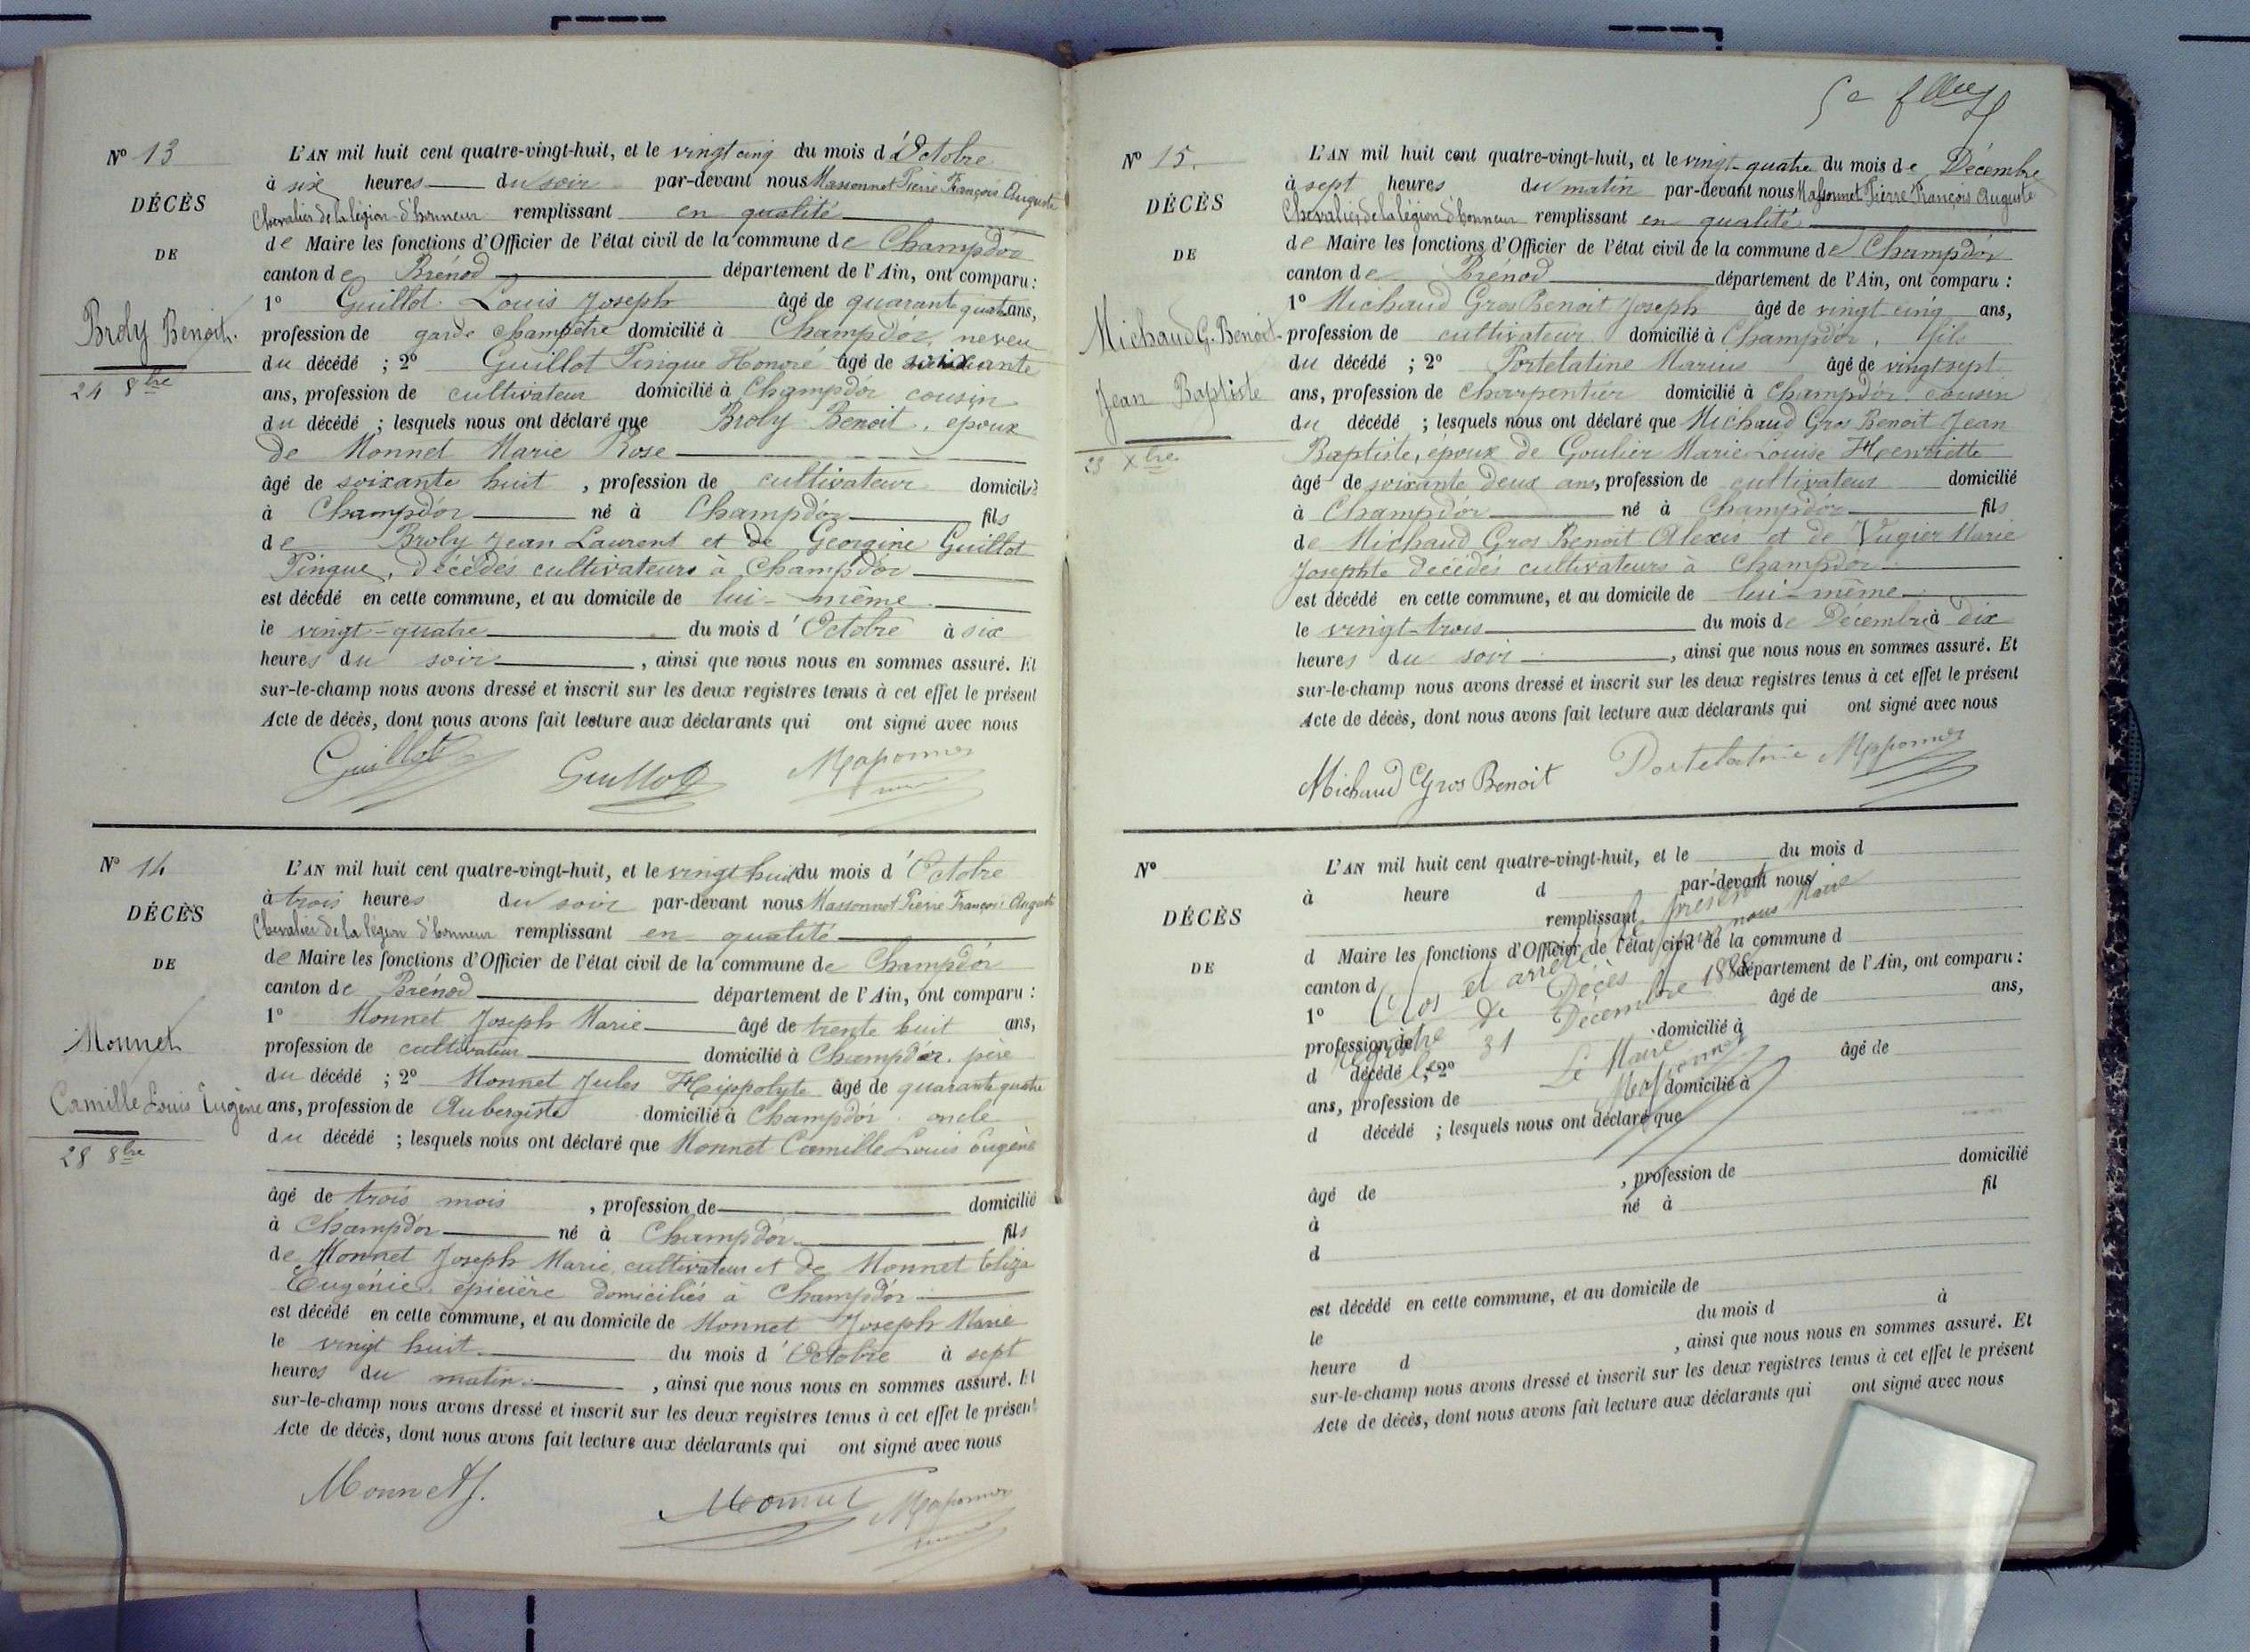 Nº 13
DÉCÈS
DE
Broly Benoit.
24 8bre
L'AN mil huit cent quatre-vingt-huit, et le vingt cinq du mois d'Octobre
à six heures du soir par-devant nous Massonnet Pierre François Auguste
Chevalier de la légion d'honneur remplissant en qualité
de Maire les fonctions d'Officier de l'état civil de la commune de Champdor
canton de Brénod département de l'Ain, ont comparu :
1º Guillot Louis Joseph âgé de quarante quatre ans,
profession de garde champêtre domicilié à Champdor, neveu
du décédé ; 2º Guillot Pingue Honoré âgé de soixante
ans, profession de cultivateur domicilié à Champdor cousin
du décédé ; lesquels nous ont déclaré que Broly Benoit, époux
de Monnet Marie Rose
âgé de soixante huit , profession de cultivateur domicilié
à Champdor né à Champdor fils
de Broly Jean Laurent et de Georgine Guillot
Pingue, décédés cultivateurs à Champdor
est décédé en cette commune, et au domicile de lui-même
le vingt-quatre du mois d'Octobre à six
heures du soir , ainsi que nous nous en sommes assuré. Et
sur-le-champ nous avons dressé et inscrit sur les deux registres tenus à cet effet le présent
Acte de décès, dont nous avons fait lecture aux déclarants qui ont signé avec nous
Guillot Guillot Massonnet
Nº 14
DÉCÈS
DE
Monnet
Camille Louis Eugène
28 8bre
L'AN mil huit cent quatre-vingt-huit, et le vingt huit du mois d'Octobre
à trois heures du soir par-devant nous Massonnet Pierre François Auguste
Chevalier de la légion d'honneur remplissant en qualité
de Maire les fonctions d'Officier de l'état civil de la commune de Champdor
canton de Brénod département de l'Ain, ont comparu :
1º Monnet Joseph Marie âgé de trente huit ans,
profession de cultivateur domicilié à Champdor, père
du décédé ; 2º Monnet Jules Hippolyte âgé de quarante quatre
ans, profession de Aubergiste domicilié à Champdor oncle
du décédé ; lesquels nous ont déclaré que Monnet Camille Louis Eugène
âgé de trois mois , profession de domicilié
à Champdor né à Champdor fils
de Monnet Joseph Marie, cultivateur et de Monnet Eliza
Eugénie, épicière domiciliés à Champdor
est décédé en cette commune, et au domicile de Monnet Joseph Marie
le vingt huit du mois d'Octobre à sept
heures du matin , ainsi que nous nous en sommes assuré. Et
sur-le-champ nous avons dressé et inscrit sur les deux registres tenus à cet effet le présent
Acte de décès, dont nous avons fait lecture aux déclarants qui ont signé avec nous
Monnet J. Monnet Massonnet
Nº 15.
DÉCÈS
DE
Michaud G. Benoit
Jean Baptiste
23 Xbre
L'AN mil huit cent quatre-vingt-huit, et le vingt-quatre du mois de Décembre
à sept heures du matin par-devant nous Massonnet Pierre François Auguste
Chevalier de la légion d'honneur remplissant en qualité
de Maire les fonctions d'Officier de l'état civil de la commune de Champdor
canton de Brénod département de l'Ain, ont comparu :
1º Michaud Gros Benoit Joseph âgé de vingt cinq ans,
profession de cultivateur domicilié à Champdor, fils
du décédé ; 2º Portelatine Marius âgé de vingt sept
ans, profession de charpentier domicilié à Champdor. cousin
du décédé ; lesquels nous ont déclaré que Michaud Gros Benoit Jean
Baptiste, époux de Goulier Marie Louise Henriette
âgé de soixante deux ans, profession de cultivateur domicilié
à Champdor né à Champdor fils
de Michaud Gros Benoit Alexis et de Vugier Marie
Josephte décédés cultivateurs à Champdor
est décédé en cette commune, et au domicile de lui-même
le vingt-trois du mois de Décembre à dix
heures du soir , ainsi que nous nous en sommes assuré. Et
sur-le-champ nous avons dressé et inscrit sur les deux registres tenus à cet effet le présent
Acte de décès, dont nous avons fait lecture aux déclarants qui ont signé avec nous
Michaud Gros Benoit Portelatine Massonnet
Nº
DÉCÈS
DE
L'AN mil huit cent quatre-vingt-huit, et le du mois d
à heure d par-devant nous
remplissant
d Maire les fonctions d'Officier de l'état civil de la commune d
canton d département de l'Ain, ont comparu :
1º âgé de ans,
profession de domicilié à
d décédé ; 2º âgé de
ans, profession de domicilié à
d décédé ; lesquels nous ont déclaré que
âgé de , profession de domicilié
à né à fil
d
est décédé en cette commune, et au domicile de
le du mois d à
heure d , ainsi que nous nous en sommes assuré. Et
sur-le-champ nous avons dressé et inscrit sur les deux registres tenus à cet effet le présent
Acte de décès, dont nous avons fait lecture aux déclarants qui ont signé avec nous
Clos et arrêté le présent
registre de Décès par nous Maire
le 31 Décembre 1888
Le Maire
Massonnet